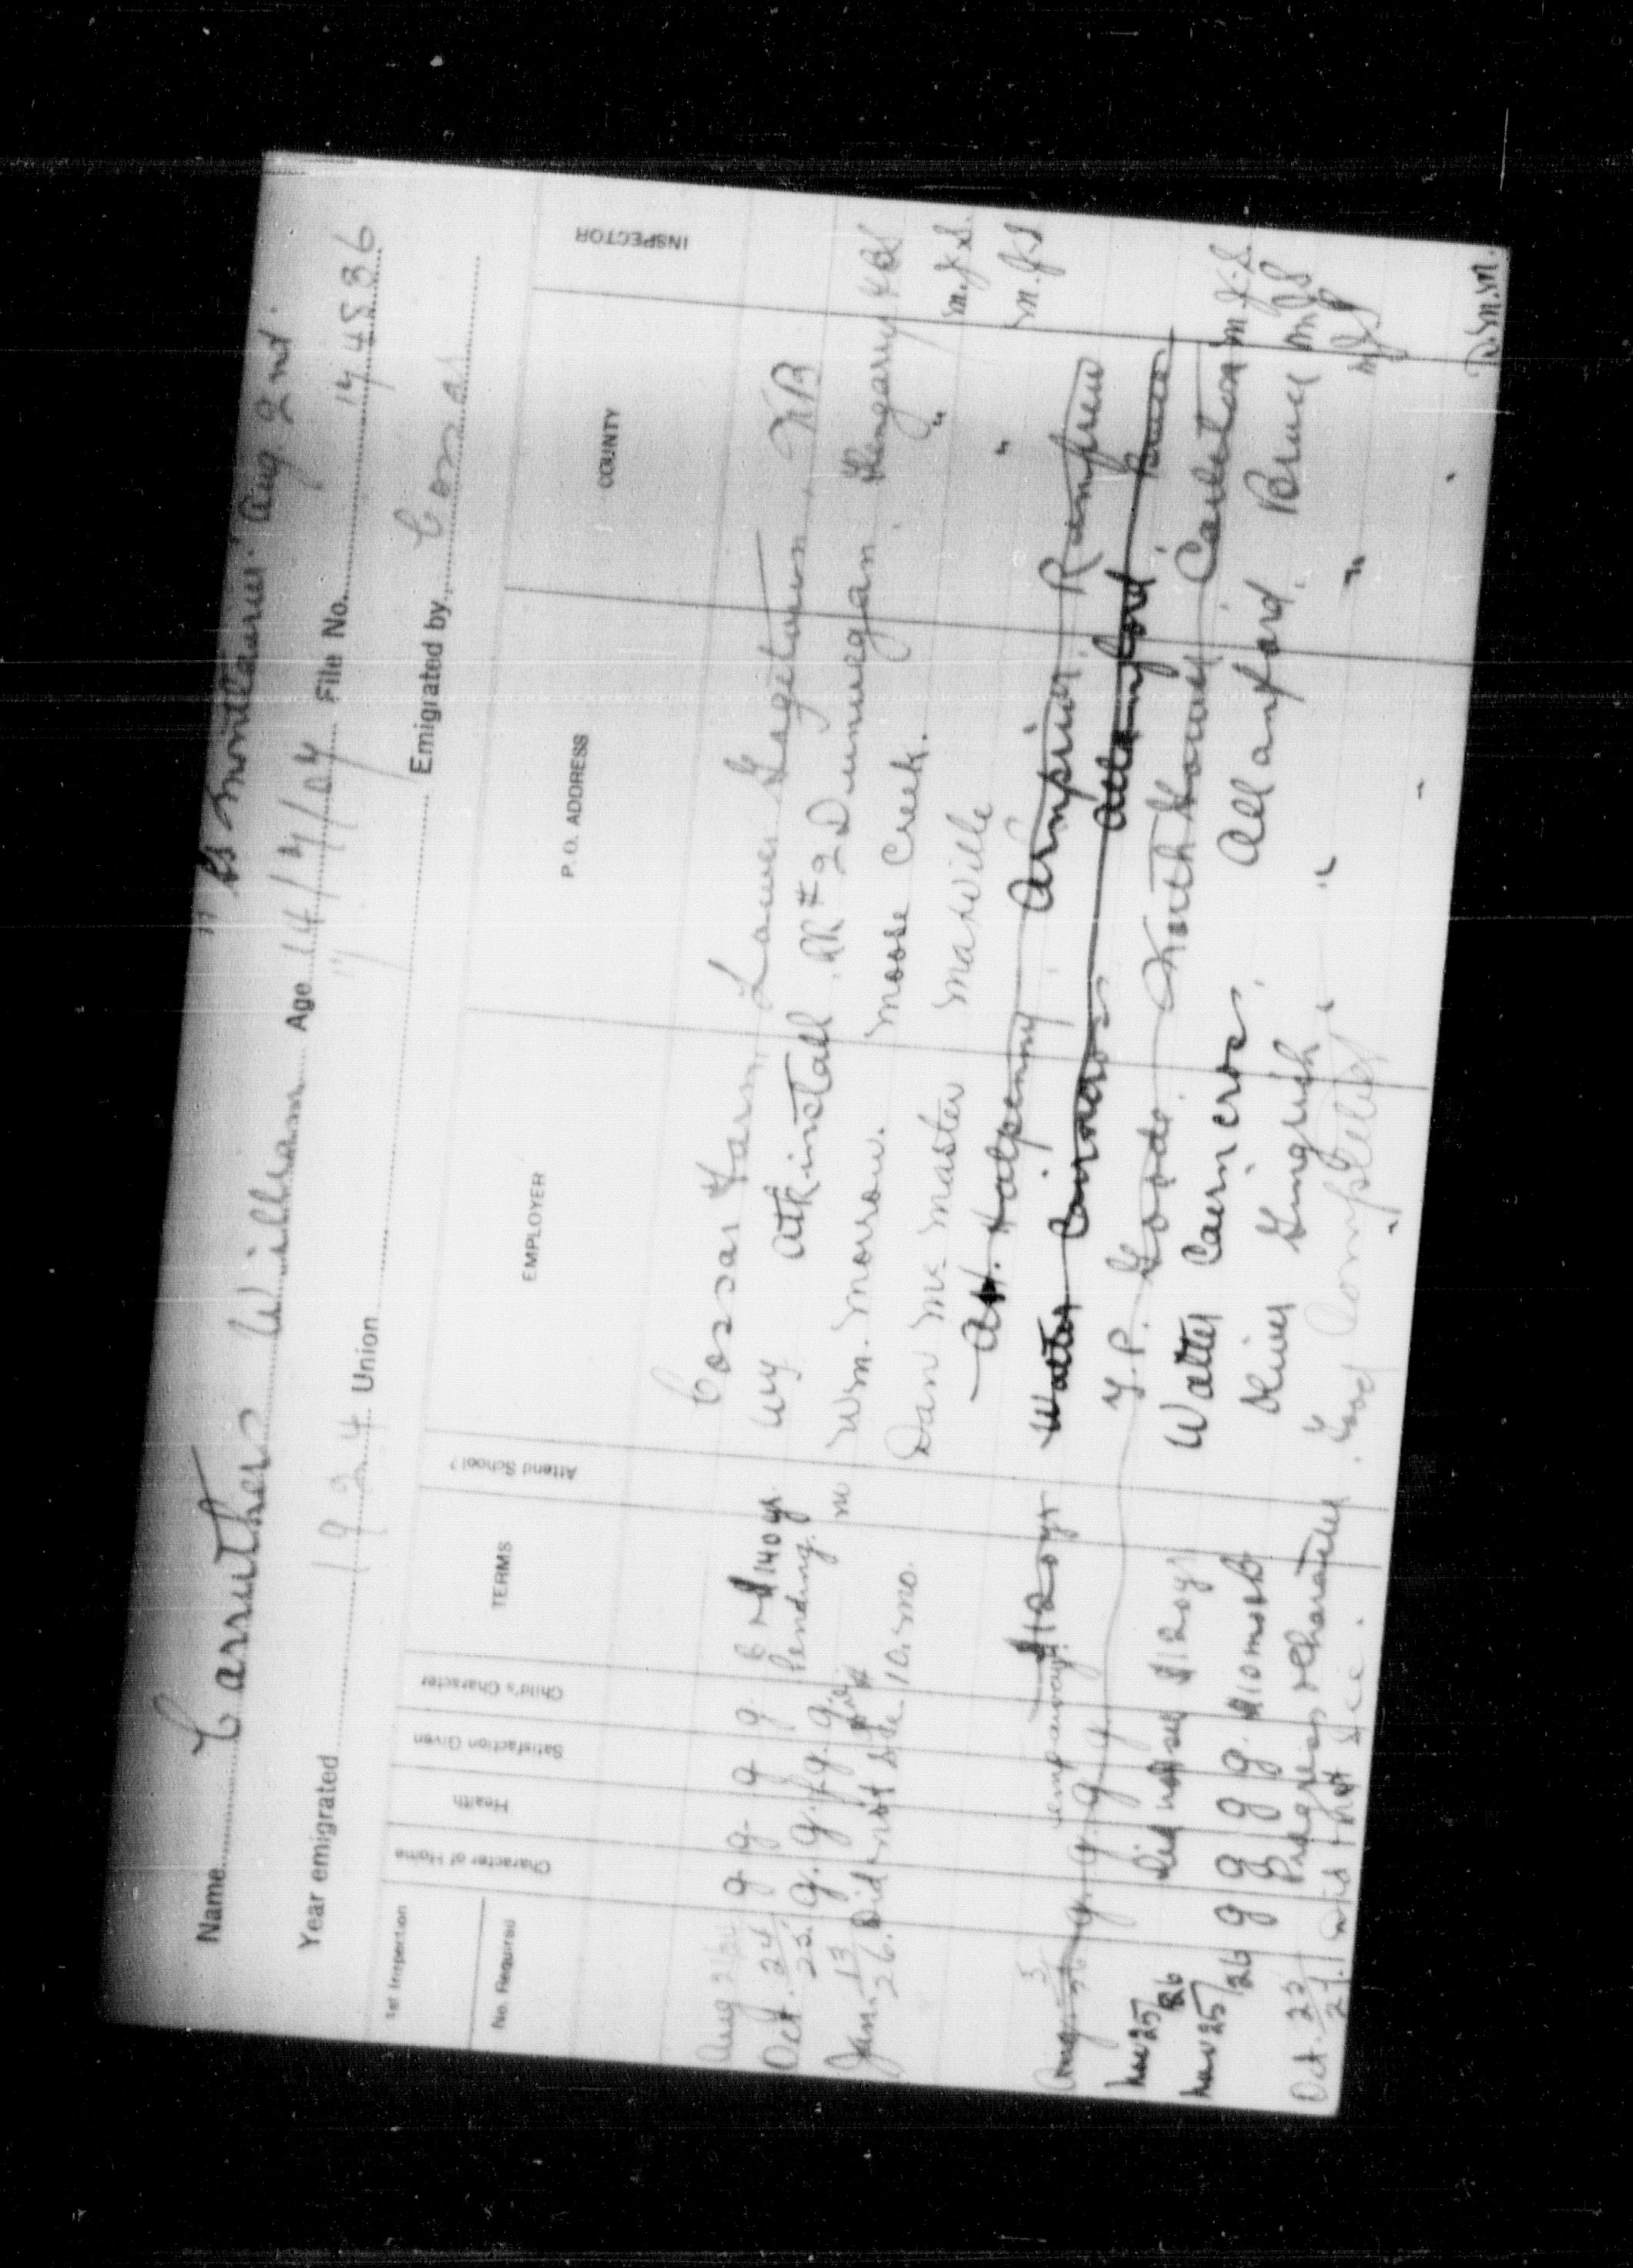 SS Montlaurier Aug 2nd.
Name Carruthers William Age 14/7/04 File No. 174836
Year emigrated 1924 Union Emigrated by Cossar
1st Inspection
No. Required
Character of Home
Health
Satisfaction Given
Child's Character
TERMS
Attend School?
EMPLOYER
P. O. ADDRESS
COUNTY
INSPECTOR
Cossar Farm Lower Gagetown NB
Aug g. g. g. g. $140 yr Wy Atkinstall RR #2 Dunvegan Glengarry
Oct. 24/25. g. g. g. Pending. no Wm. Morrow. Moose Creek. " M.J.S.
Jan. 13/26. Did not see 10. mo. Dan McMaster Maxville " M.J.S
A.H. Halpenny. Arnprior. Renfrew
Walter Cairncross Allanford Bruce
Aug. 3/26 g. g. g. g. $120 yr Y.P. Goode. North Gower Carleton M.J.S.
Nov 25/26 Did not see $120 yr Walter Cairncross. Allanford. Bruce MJS
Nov 25/26 g g g g. $10 mo Oliver Gingrich " " MJS
Progress & Character Good Completed
Oct. 22/27. Did not see. D.M.M.